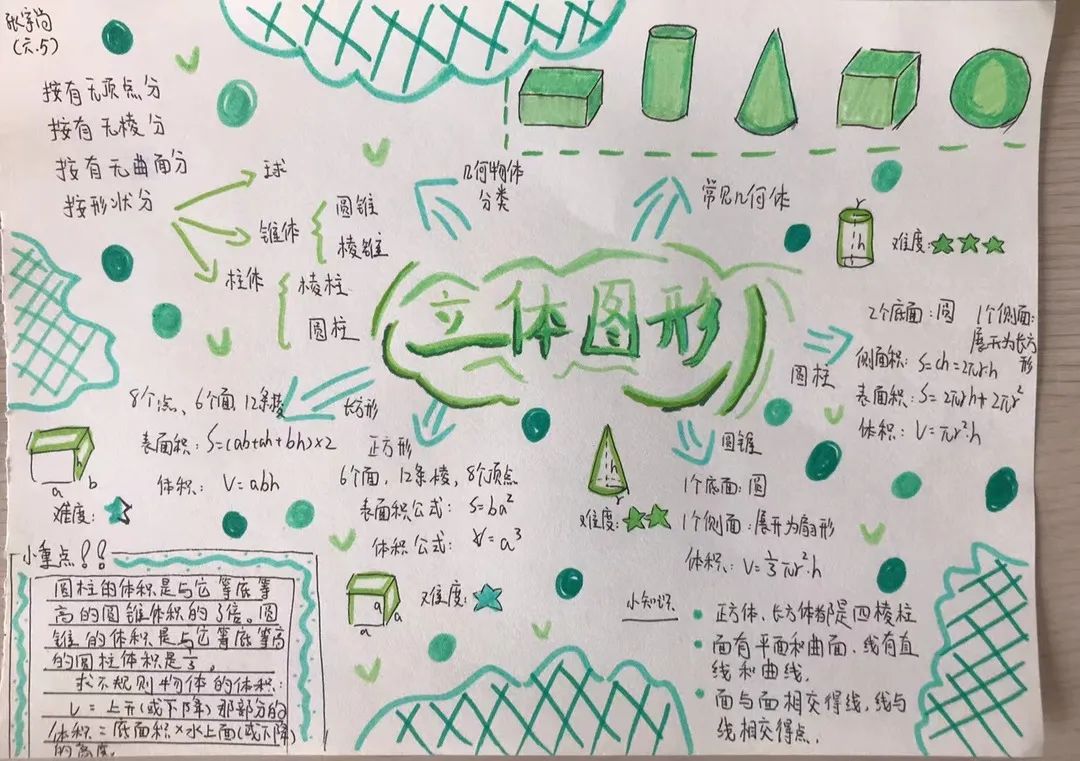 张宇尚
(六.5)
按有无顶点分
按有无棱分
按有无曲面分
按形状分
球
锥体
圆锥
棱锥
柱体
棱柱
圆柱
几何物体
分类
常见几何体
立体图形
r
h
难度:
圆柱
2个底面:圆
1个侧面:
展开为长方
形
侧面积:S=ch=2πr·h
表面积:S=2πrh+2πr²
体积:V=πr²·h
长方形
8个点、6个面,12条棱
表面积:S=(ab+ah+bh)×2
体积:V=abh
h
b
a
难度:
正方形
6个面,12条棱,8个顶点
表面积公式:S=6a²
体积公式:V=a³
a
a
a
难度:
圆锥
1个底面:圆
1个侧面:展开为扇形
体积:V=⅓πr²·h
h
r
难度:
小重点!!
圆柱的体积是与它等底等
高的圆锥体积的3倍。圆
锥的体积是与它等底等高
的圆柱体积是⅓。
求不规则物体的体积:
V=上升(或下降)那部分的
体积=底面积×水上面(或下降)
的高度.
小知识
正方体、长方体都是四棱柱
面有平面和曲面、线有直
线和曲线.
面与面相交得线,线与
线相交得点.